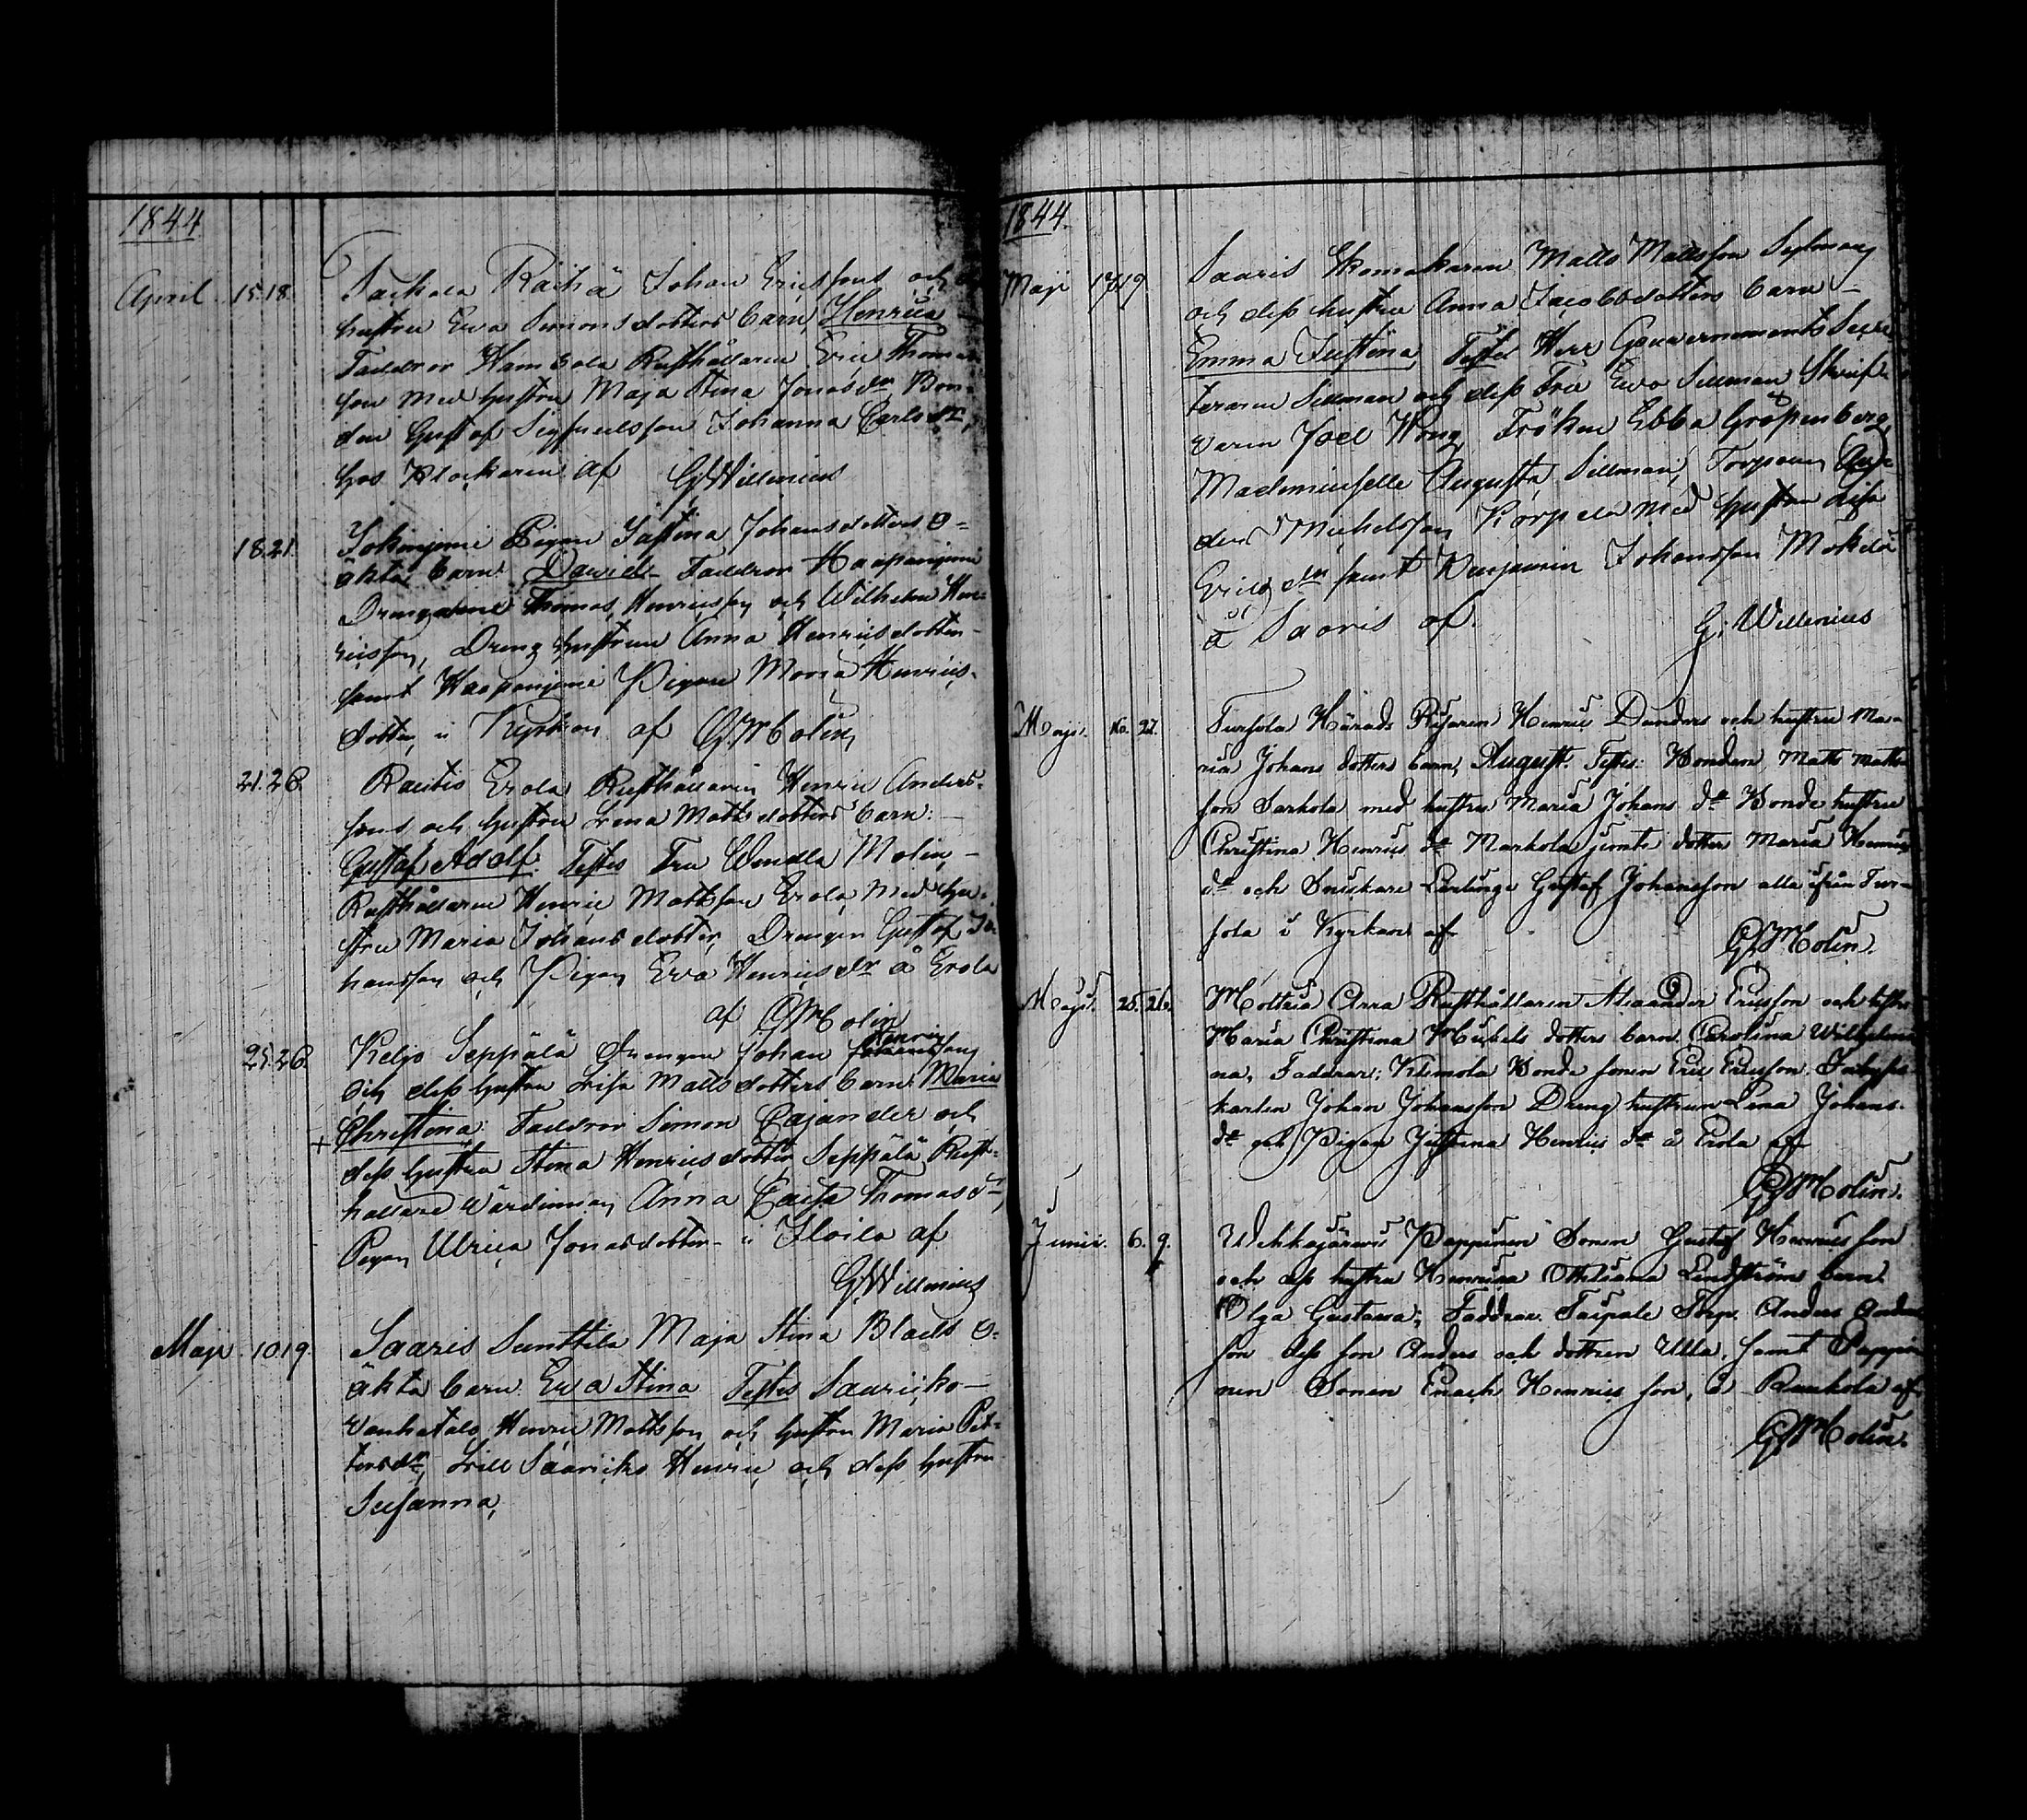 1844
April 15. 18. Sarkola Räihä Johan Ericssons och
hustru Eva Simonsdotters barn Henrica
Faddror Hamsola Rusthållaren Eric Thomas
son med hustru Maja Stina Jonasdr Bon-
den Gustaf Sigfredsson Johanna Carlsdr,
hos Klockaren af G Willenius
18. 21. Jokinjemi Pigan Justina Johansdotters o-
äkta barn David Faddror Haapanjemi
Drengarne Thomas Henricsson och Wilhelm Hen-
ricsson, Dreng hustrun Anna Henricsdotter
samt Haapanjemi Pigan Maria Henrics-
dotter, i Kyrkan af G Molin
21. 28. Rautis Erola Rusthållaren Henric Anders-
sons och hustru Lena Matsdotters barn:
Gustaf Adolf. Testes Fru Wendla Molin
Rusthållaren Henric Mattsson Erola med hu-
stru Maria Johansdotter, Drengen Gustaf Jo-
hansson och Pigan Eva Henricsdr å Erola
af G Molin
25. 28. Keljo Seppälä Drengen Johan Henricssons
och dess hustru Lisa Mattsdotters barn Maria
+ Christina: Faddror Simon Cajander och
dess hustru Stina Henricsdotter Seppälä Rust-
hållare Wärdinnan Anna Caisa Thomasdr
Pigan Ulrica Jonasdotter i Iloila af
G Willenius
Maji 10. 19. Saaris Sunttila Maja Stina Blads o-
äkta barn Eva Stina Testes Saaricko
Vanhatalo Henric Mattsson och hustru Maria Pet-
tersdr, Lill Saaricko Henric och dess hustru
Susanna,
1844.
Maji 17. 19 Saaris Skomakaren Matts Mattsson
och dess hustru Anna Jacobsdotters barn
Emma Justina Testes Herr Gouvernements Secre
teraren Sillman och dess Fru Eva Sillman Skrif-
varen Joel Wong, Fröken Ebba Gripenberg,
Mademoiselle Augusta Sillman, Torparen An-
ders Michelsson Korpela med hustru Lisa
Erics dr samt Benjamin Johansson Mäkelä
å Saaris af G. Willenius
Maji. 20. 27. Tursola Härads Henric Danders och hustru Ma-
ria Johans dotters barn, August. Testes: Bonden Matts Matts
son Sarkola med hustru Maria Johans dr Bonde hustru
Christina Henrics dr Markola jemte dotter Maria Henrics
dr och Snickare Lärlinge Gustaf Johansson alla ifrån Tur-
sola i Kyrkan af
G Molin.
Maji. 25. 26. Moltsia Arra Rusthållaren Alexander Ericsson och hustru
Maria Christina Michels dotters barn Carolina Wilhelmi
na, Faddrar: Klemola Bonde sonen Eric Ericsson.
karlen Johan Johansson Dreng hustrun Lena Johans-
dr och Pigan Justina Henrics dr å Erola af
G Molin.
Junii. 6. 9. Wehkajärvis Pappinen Sonen Gustaf Henricsson
och dess hustru Henrica Ottiliana Lindströms barn
Olga Gustava; Faddrar. Taipale Torp. Anders Anders
son dess son Anders och dottren Ulla, samt Pappi
nen Sonen Enoch Henrics son, å Rankola af
G Molin.